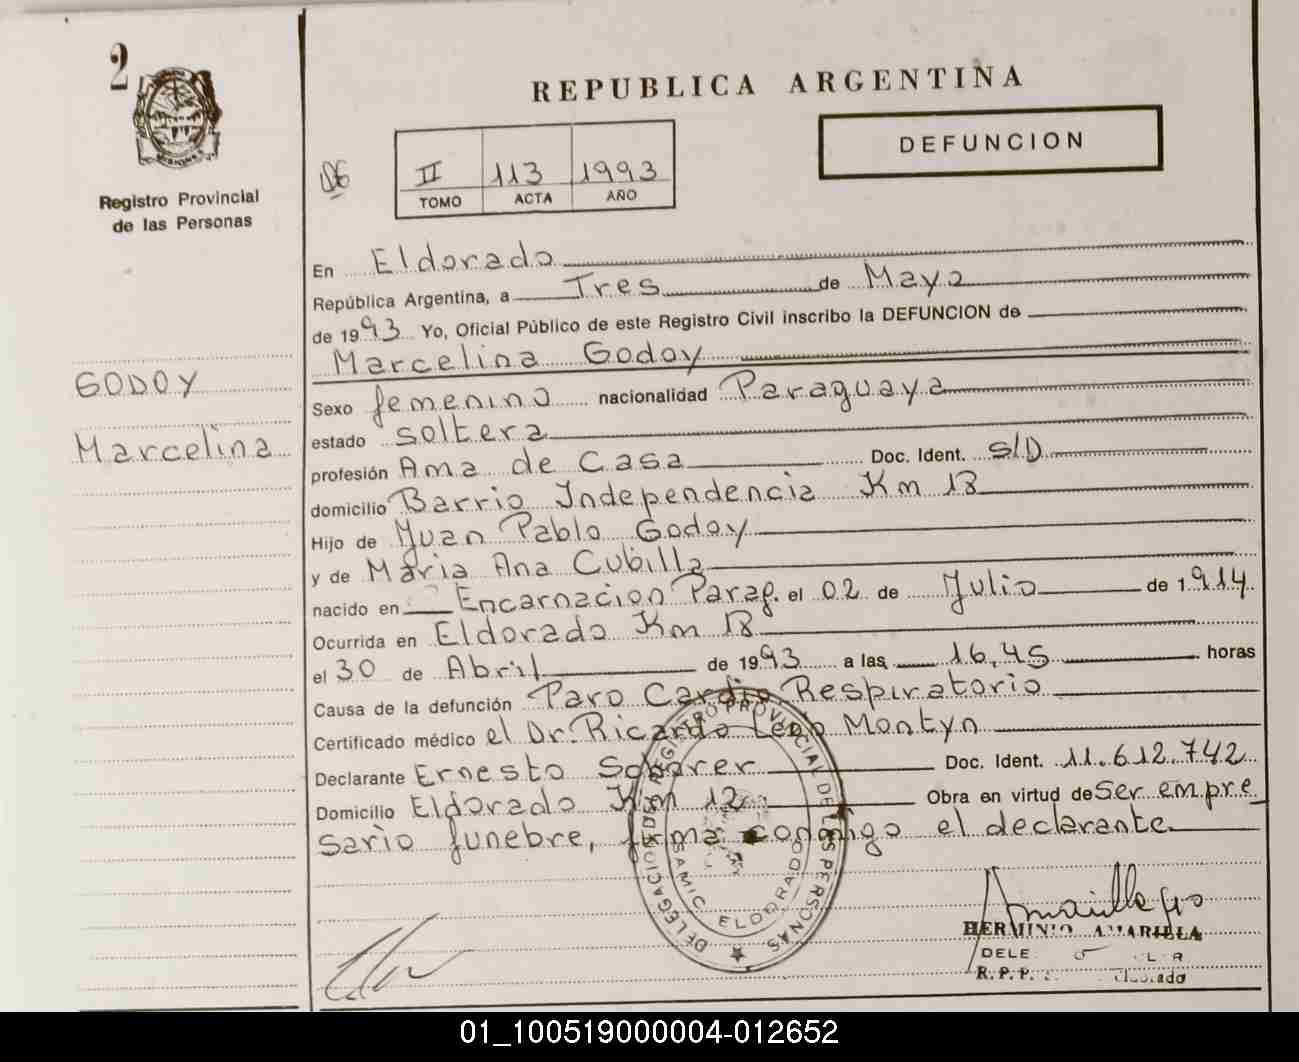 2
REPUBLICA ARGENTINA
DEFUNCION
II 113 1993
TOMO ACTA AÑO
Registro Provincial
de las Personas
En Eldorado
República Argentina, a Tres de Mayo
de 1993 Yo, Oficial Público de este Registro Civil inscribo la DEFUNCION de
Marcelina Godoy
GODOY
Marcelina
Sexo femenino nacionalidad Paraguaya
estado soltera
profesión Ama de Casa Doc. Ident. S/D
domicilio Barrio Independencia Km 18
Hijo de Juan Pablo Godoy
y de Maria Ana Cubilla
nacido en Encarnacion Parag. el 02 de Julio de 1.914
Ocurrida en Eldorado Km 18
el 30 de Abril de 1993 a las 16,45 horas
Causa de la defunción Paro Cardio Respiratorio
Certificado médico el Dr. Ricardo León Montyn
Declarante Ernesto Doc. Ident. 11.612.742
Domicilio Eldorado Km 12 Obra en virtud de Ser empre
sario funebre, firma conmigo el declarante
DELEGACION REGISTRO PROVINCIAL DE LAS PERSONAS
SAMIC ELDORADO
HERMINIO AMARILLA
DELE
R. P. P. Eldorado
01_100519000004-012652